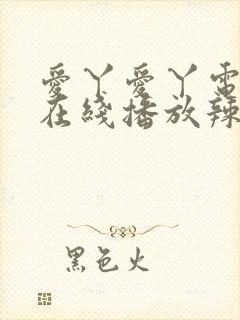 愛丫愛丫電
在綫播放辣
黑色火